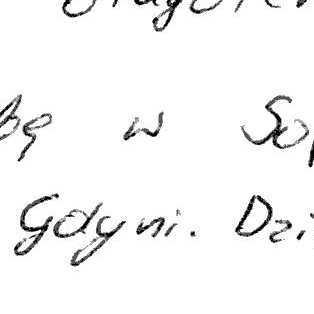 bę w Sop
Gdyni. Dzi